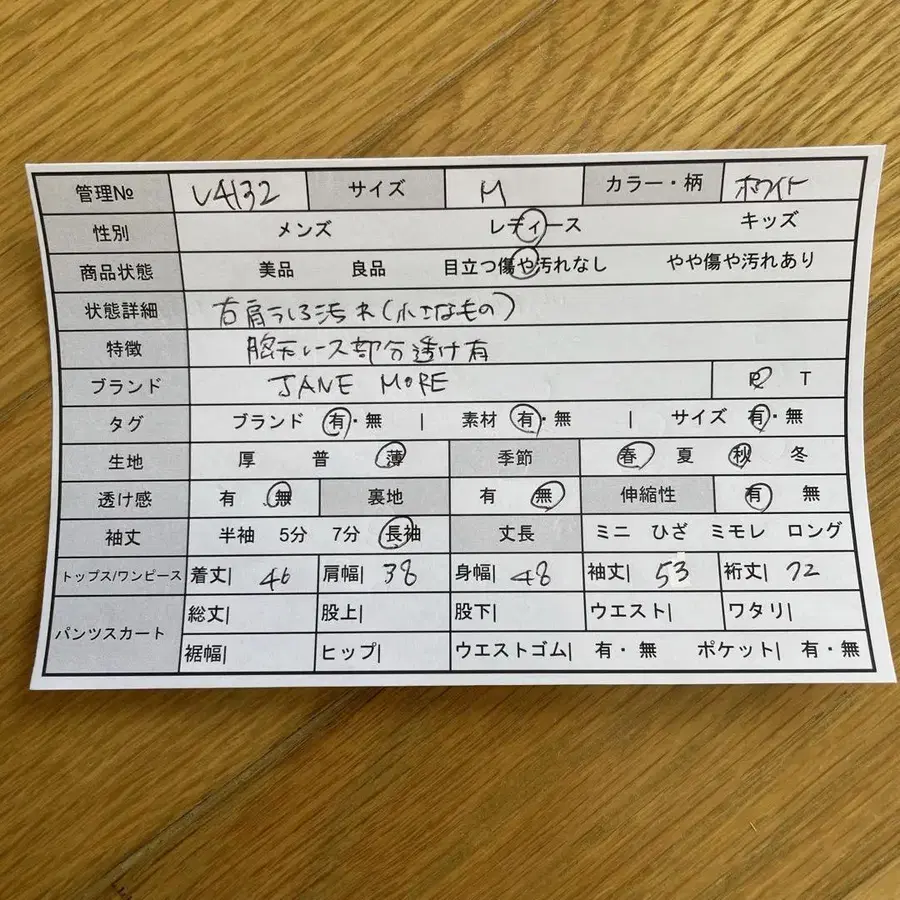 管理№ V4132 サイズ M カラー・柄 ホワイト
性別 メンズ レディース キッズ
商品状態 美品 良品 目立つ傷や汚れなし やや傷や汚れあり
状態詳細 右肩うしろ汚れ(小さなもの)
特徴 胸元レース部分透け有
ブランド JANE MORE R T
タグ ブランド 有・無 | 素材 有・無 | サイズ 有・無
生地 厚 普 薄 季節 春 夏 秋 冬
透け感 有 無 裏地 有 無 伸縮性 有 無
袖丈 半袖 5分 7分 長袖 丈長 ミニ ひざ ミモレ ロング
トップス/ワンピース 着丈| 46 肩幅| 38 身幅| 48 袖丈| 53 裄丈| 72
パンツスカート 総丈| 股上| 股下| ウエスト| ワタリ|
裾幅| ヒップ| ウエストゴム| 有・無 ポケット| 有・無